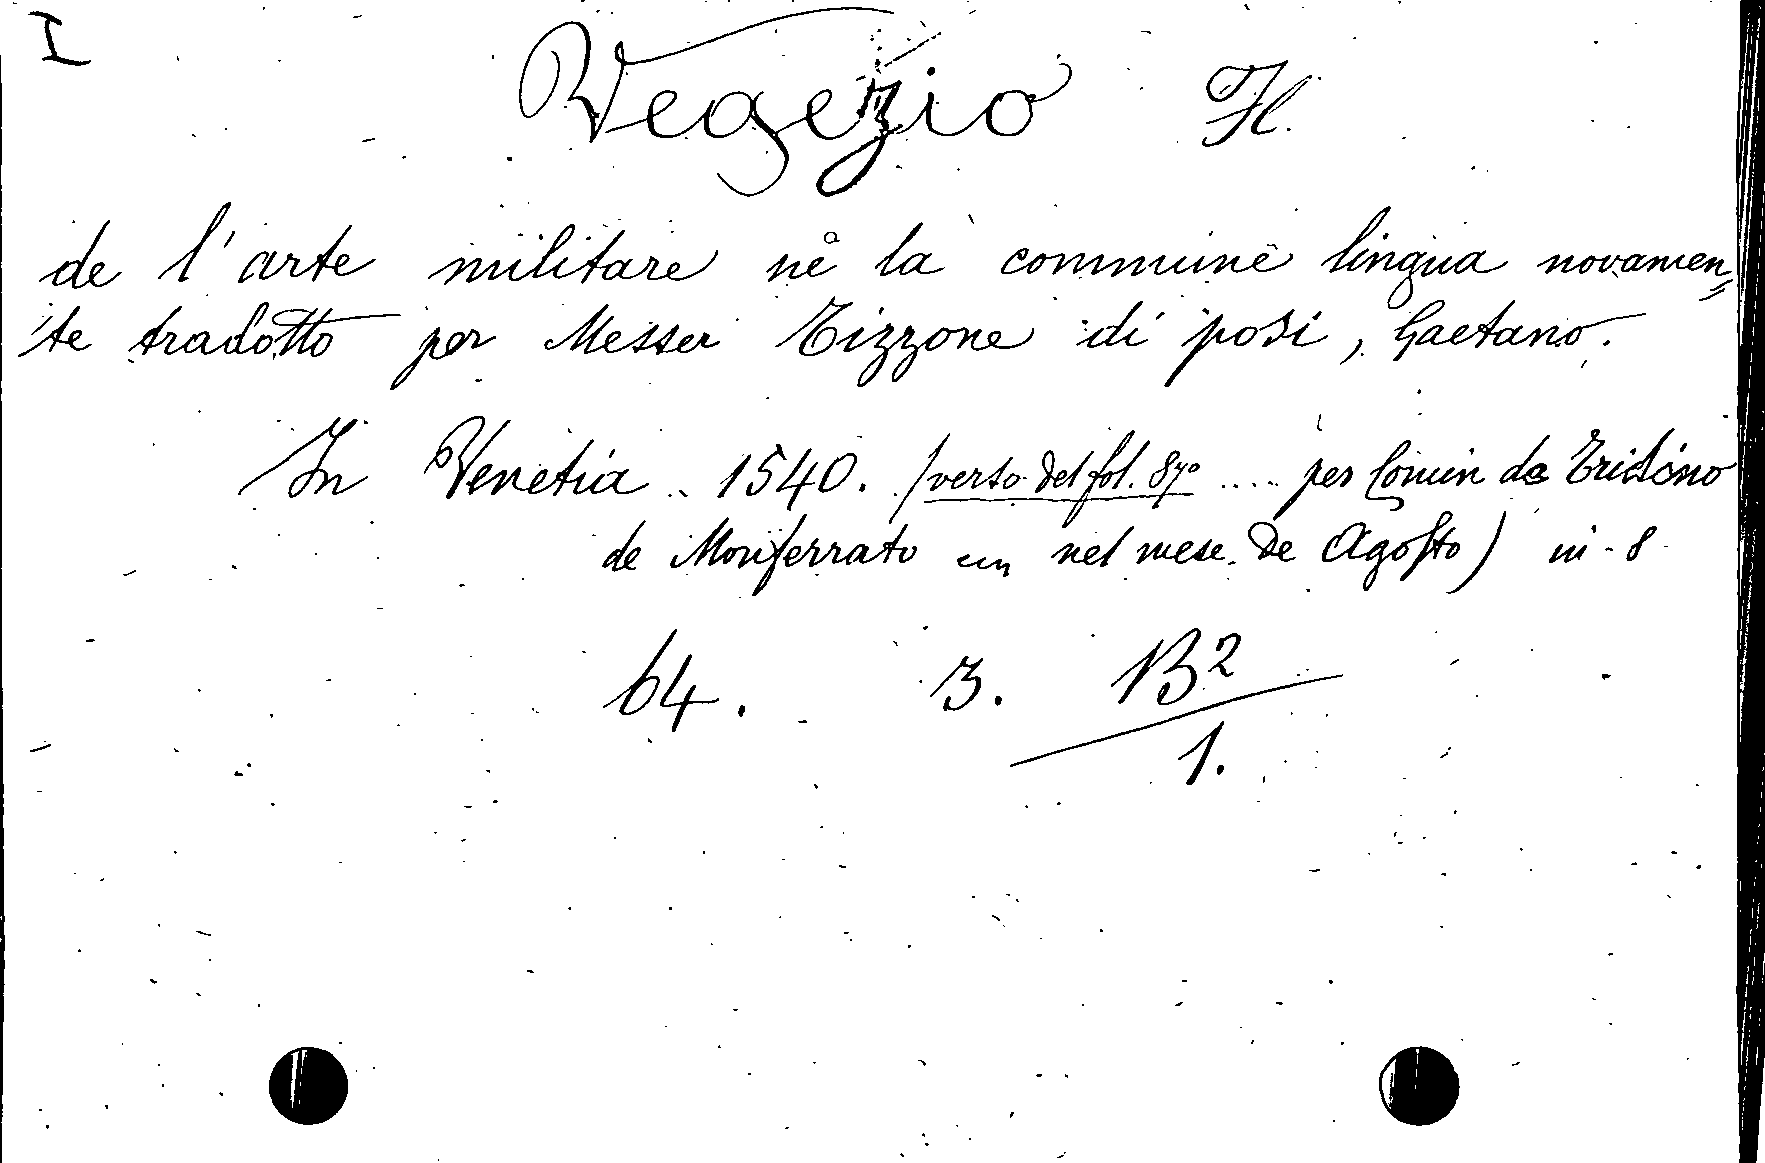 I
Vegezio Fl.
de l'arte militare nè la commune lingua novamen=
te tradotto per Messer Tizzone di posi, Gaetano.
In Venetia 1540. (verso del fol. 87° .... per Comin de Tridino
de Monferrato nel mese de Agosto) in-8
64. 3. B2
1.